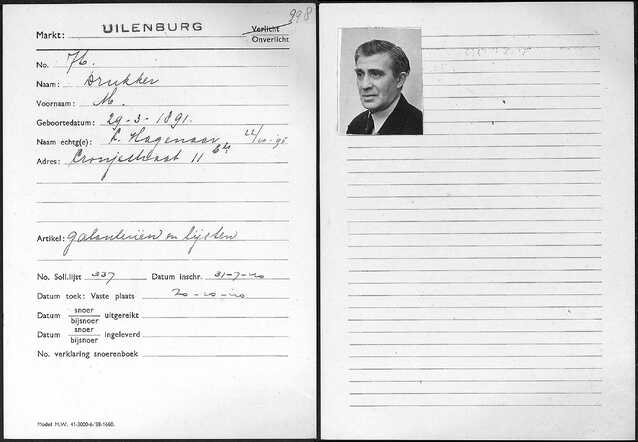 998
Markt: UILENBURG Verlicht
Onverlicht
No. 76.
Naam: Drukker
Voornaam: M.
Geboortedatum: 29-3-1891.
Naam echtg(e): L. Hagenaar 22/10-95
Adres: Cronjéstraat 11
Artikel: galanteriën en lijsten
No. Soll.lijst 337 Datum inschr. 31-7-20
Datum toek: Vaste plaats 20-10-20
Datum snoer/bijsnoer uitgereikt
Datum snoer/bijsnoer ingeleverd
No. verklaring snoerenboek
Model M.W. 41-3000-6/38-1660.